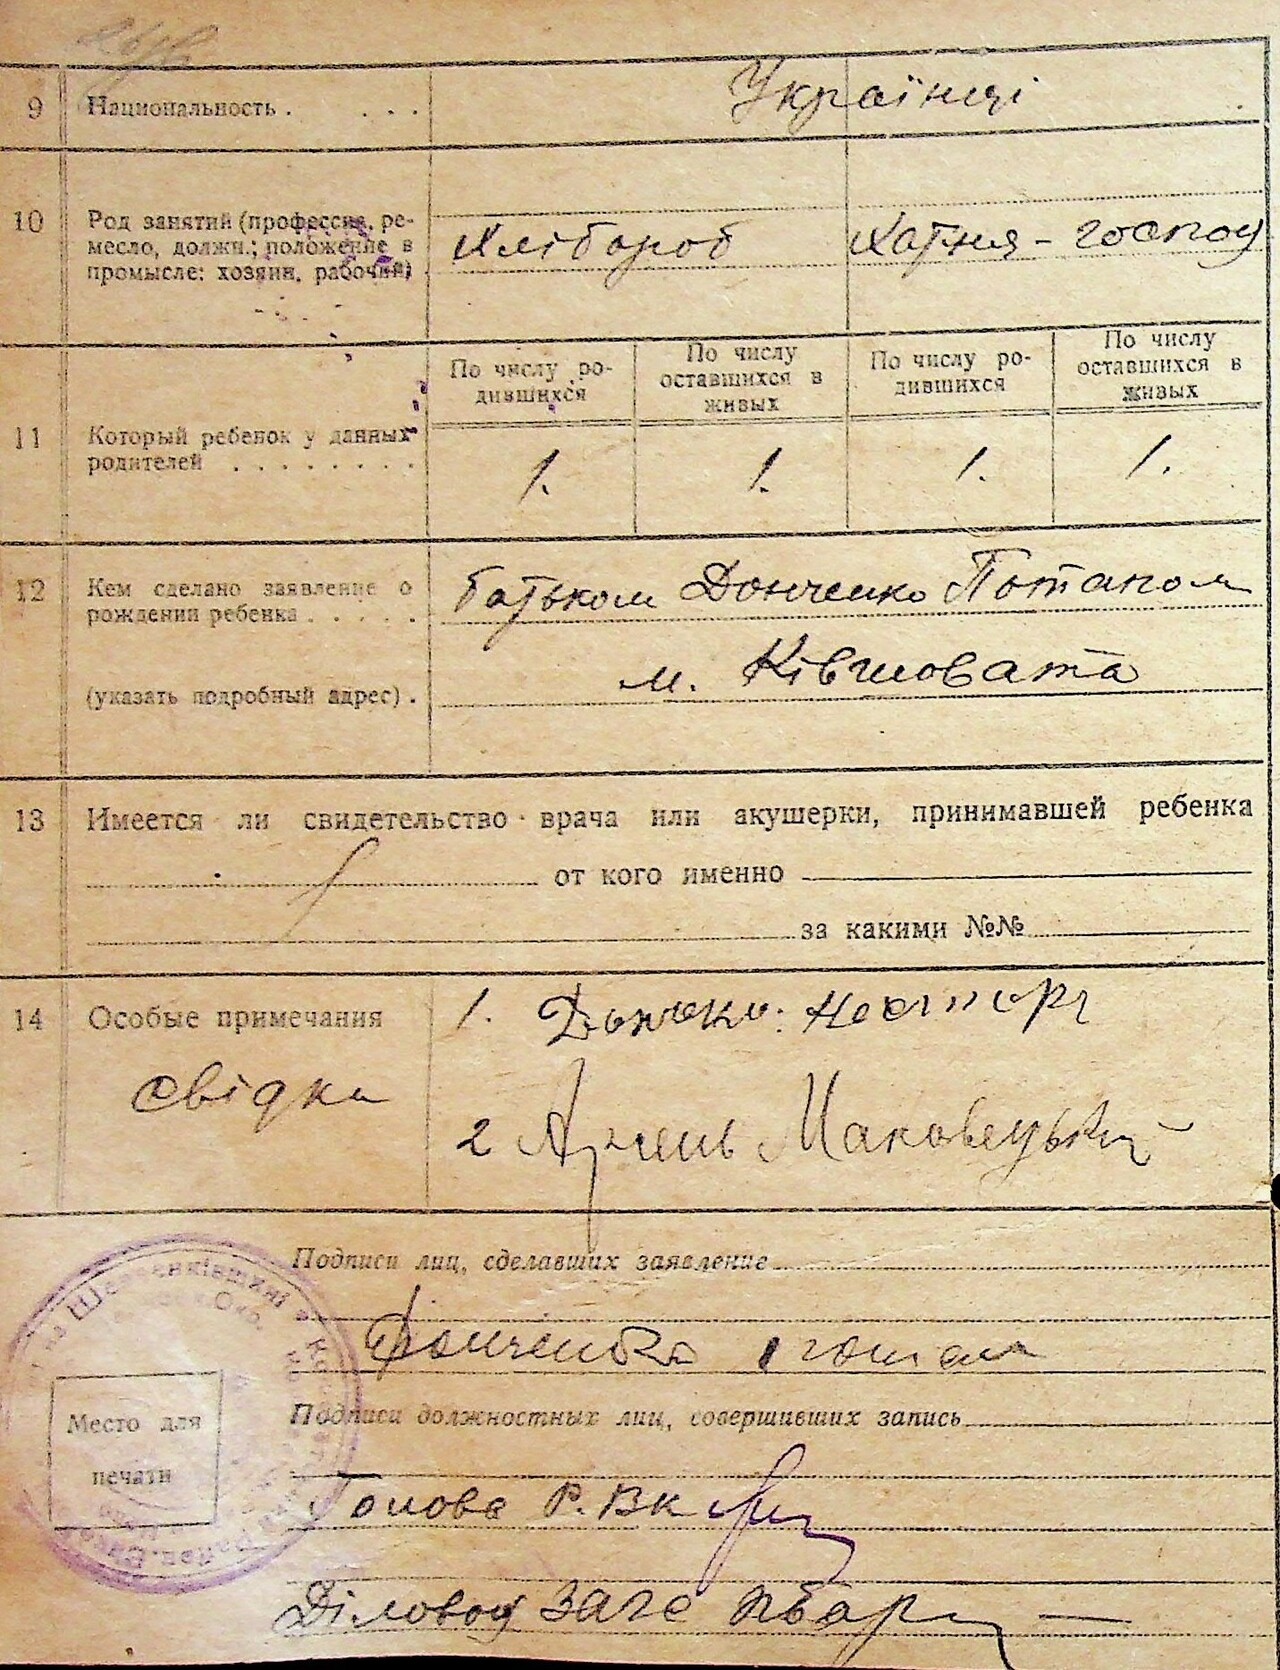 9 Национальность . . . . Українці
10 Род занятий (профессия, ре-
месло, должн.; положение в
промысле: хозяин, рабочий)
Хлібороб Хатня - господ
По числу ро-
дившихся
По числу
оставшихся в
живых
По числу ро-
дившихся
По числу
оставшихся в
живых
11 Который ребенок у данных
родителей . . . . . . . .
1. 1. 1. 1.
12 Кем сделано заявление о
рождении ребенка . . . . .
батьком Донченко Потапом
(указать подробный адрес) . м. Ківшовата
13 Имеется ли свидетельство врача или акушерки, принимавшей ребенка
от кого именно
за какими №№
14 Особые примечания
свідки
1. Донченко Нестор
2 Маковецький
Подписи лиц, сделавших заявление
Донченко
Подписи должностных лиц, совершивших запись
Место для
печати
Голова Р.ВК
Діловод ЗАГС